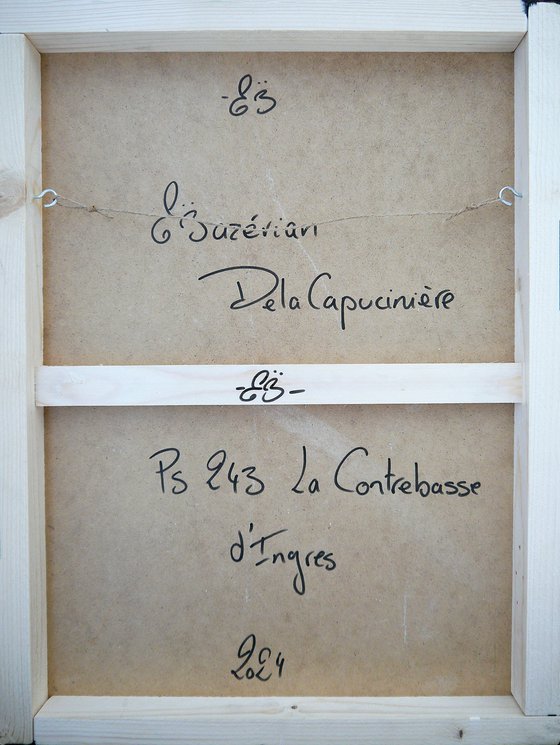 -EB̈
EB̈uzérian
De la Capucinière
-EB̈-
Ps 243 La Contrebasse
d'Ingres
2024